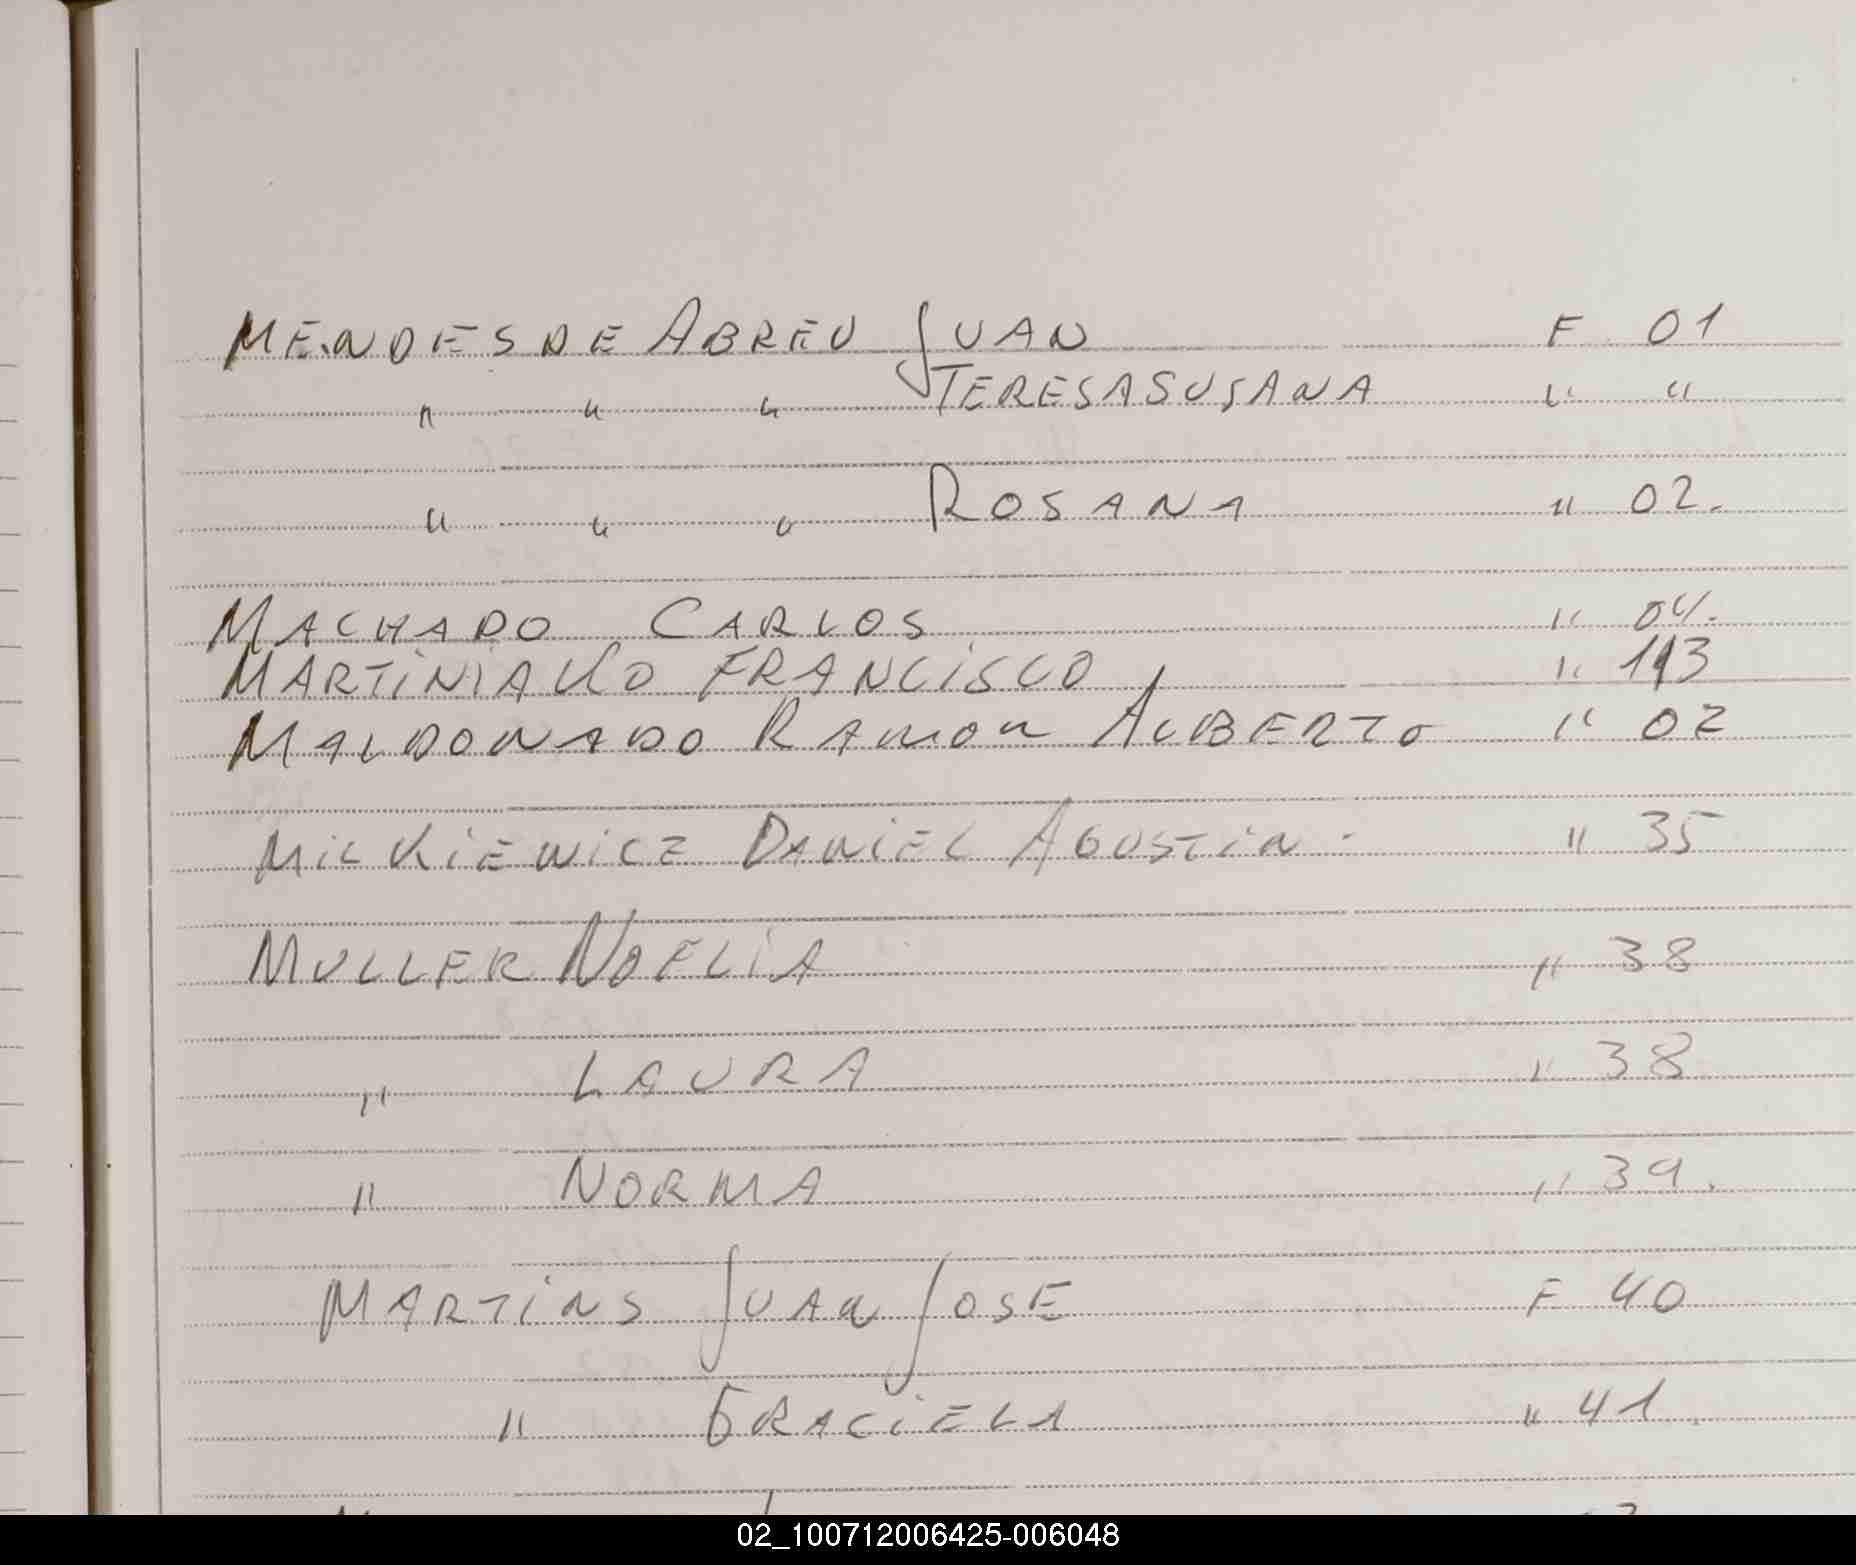 MENDES DE ABREU JUAN F 01
" " " TERESA SUSANA " "
" " " ROSANA " 02.
MACHADO CARLOS " 04.
MARTINIAKO FRANCISCO " 113
MALDONADO RAMON ALBERTO " 02
MICKIEWICZ DANIEL AGUSTIN - " 35
MULLER NOELIA " 38
" LAURA " 38
" NORMA " 39.
MARTINS JUAN JOSE F 40
" GRACIELA " 41.
02_100712006425-006048